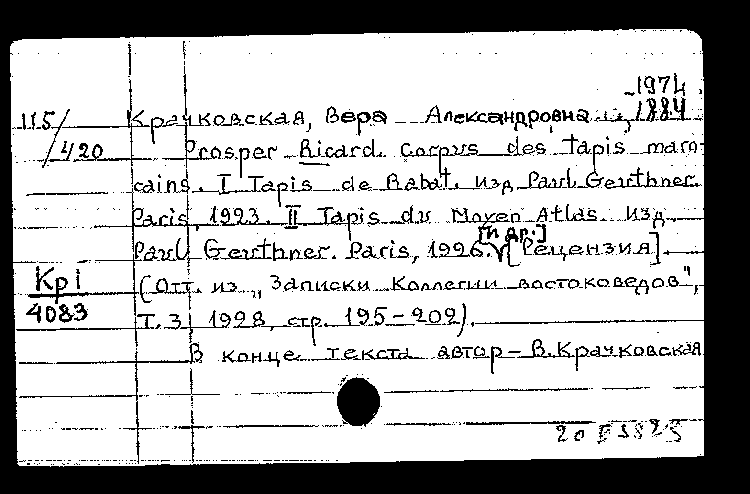 -1974
115/420 Крачковская, Вера Александровна, 1884
Prosper Ricard. Corpus des tapis maro-
cains. I Tapis de Rabat. изд. Paul Geuthner.
Paris, 1923. II Tapis du Moyen Atlas. Изд.
[и др.]
Paul Geuthner. Paris, 1926. V [Рецензия].
Кр I
4083
(Отт. из „Записки Коллегии востоковедов",
т. 3, 1928, стр. 195-202).
В конце текста автор – В. Крачковская